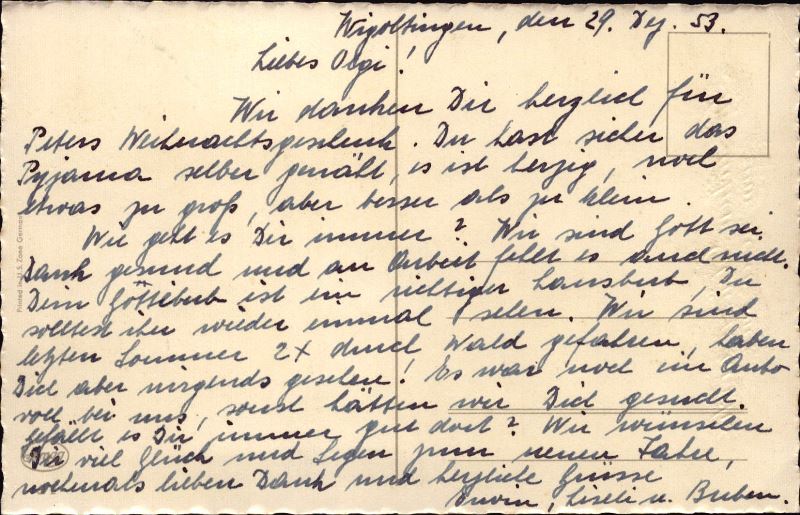 Wigoltingen, den 29. Dez. 53.
Liebes Olgi!
Wir danken Dir herzlich für
Peters Weihnachtsgeschenk. Du hast sicher das
Pyjama selber genäht, es ist herzig, noch
etwas zu groß, aber besser als zu klein.
Wie geht es Dir immer? Wir sind Gott sei
Dank gesund und an Arbeit fehlt es auch nicht.
Dein Göttibub ist ein richtiger Lausbub, Du
solltest ihn wieder einmal sehen. Wir sind
letzten Sommer 2x durch Wald gefahren, haben
Dich aber nirgends gesehen! Es war noch ein Auto
voll bei uns, sonst hätten wir Dich gesucht.
Gefällt es Dir immer gut dort? Wir wünschen
Dir viel Glück und Segen zum neuen Jahre,
nochmals lieben Dank und herzliche Grüsse
Erwin, Liseli u. Buben.
Printed in U.S. Zone Germany